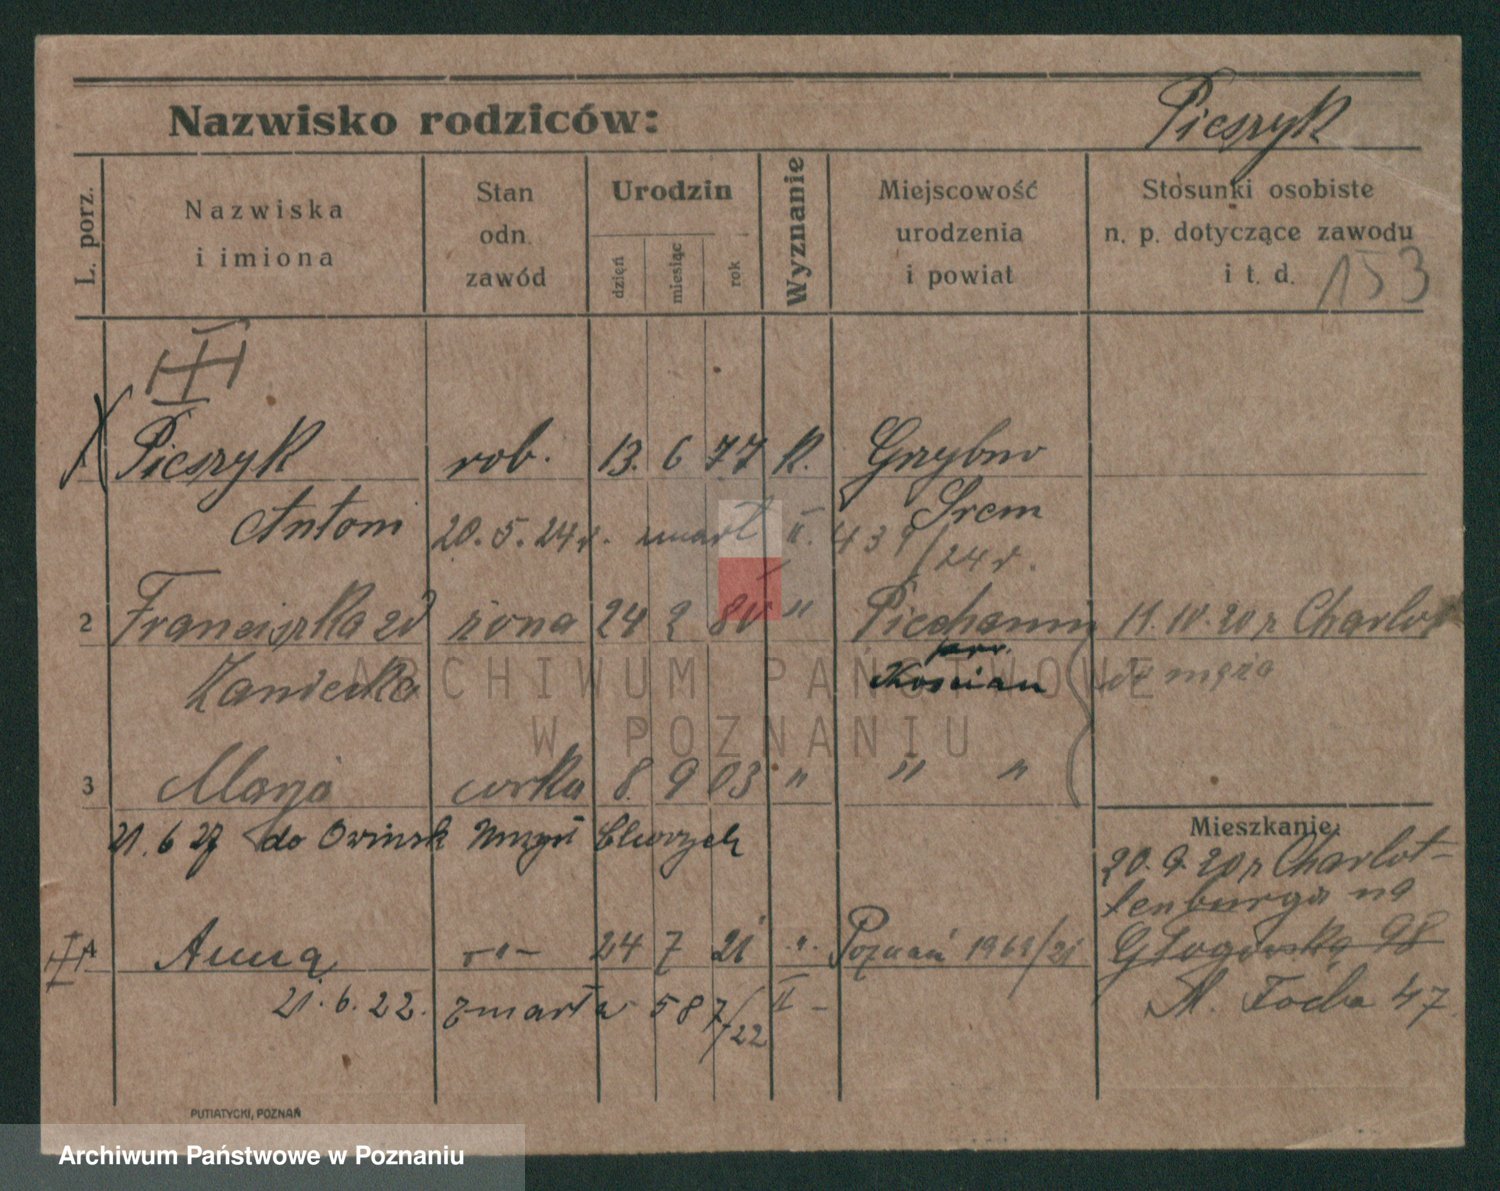 Nazwisko rodziców: Pieszyk
L. porz.
Nazwiska
i imiona
Stan
odn.
zawód
Urodzin
dzień
miesiąc
rok
Wyznanie
Miejscowość
urodzenia
i powiat
Stosunki osobiste
n. p. dotyczące zawodu
i t. d.
153
Pieszyk rob. 13. 6 77 k. Grzybno
Antoni Śrem
20. 5. 24 r. zmarł II. 439/24 r.
2 Franciszka zd żona 24 2 80 " 11. IV. 20 z Charlot
Zaniecka Kościan do męża
3 Marja córka 8. 9 03 " " "
21. 6 27 do Owińsk
Mieszkanie:
20. 9. 20 z Charlot-
tenburga na
4 Anna -"- 24 7 21 " Poznań 1961/21 Głogowską 98
21. 6. 22. zmarła 587/22 II - M. Focha 47.
PUTIATYCKI, POZNAŃ
ARCHIWUM PAŃSTWOWE
W POZNANIU
Archiwum Państwowe w Poznaniu